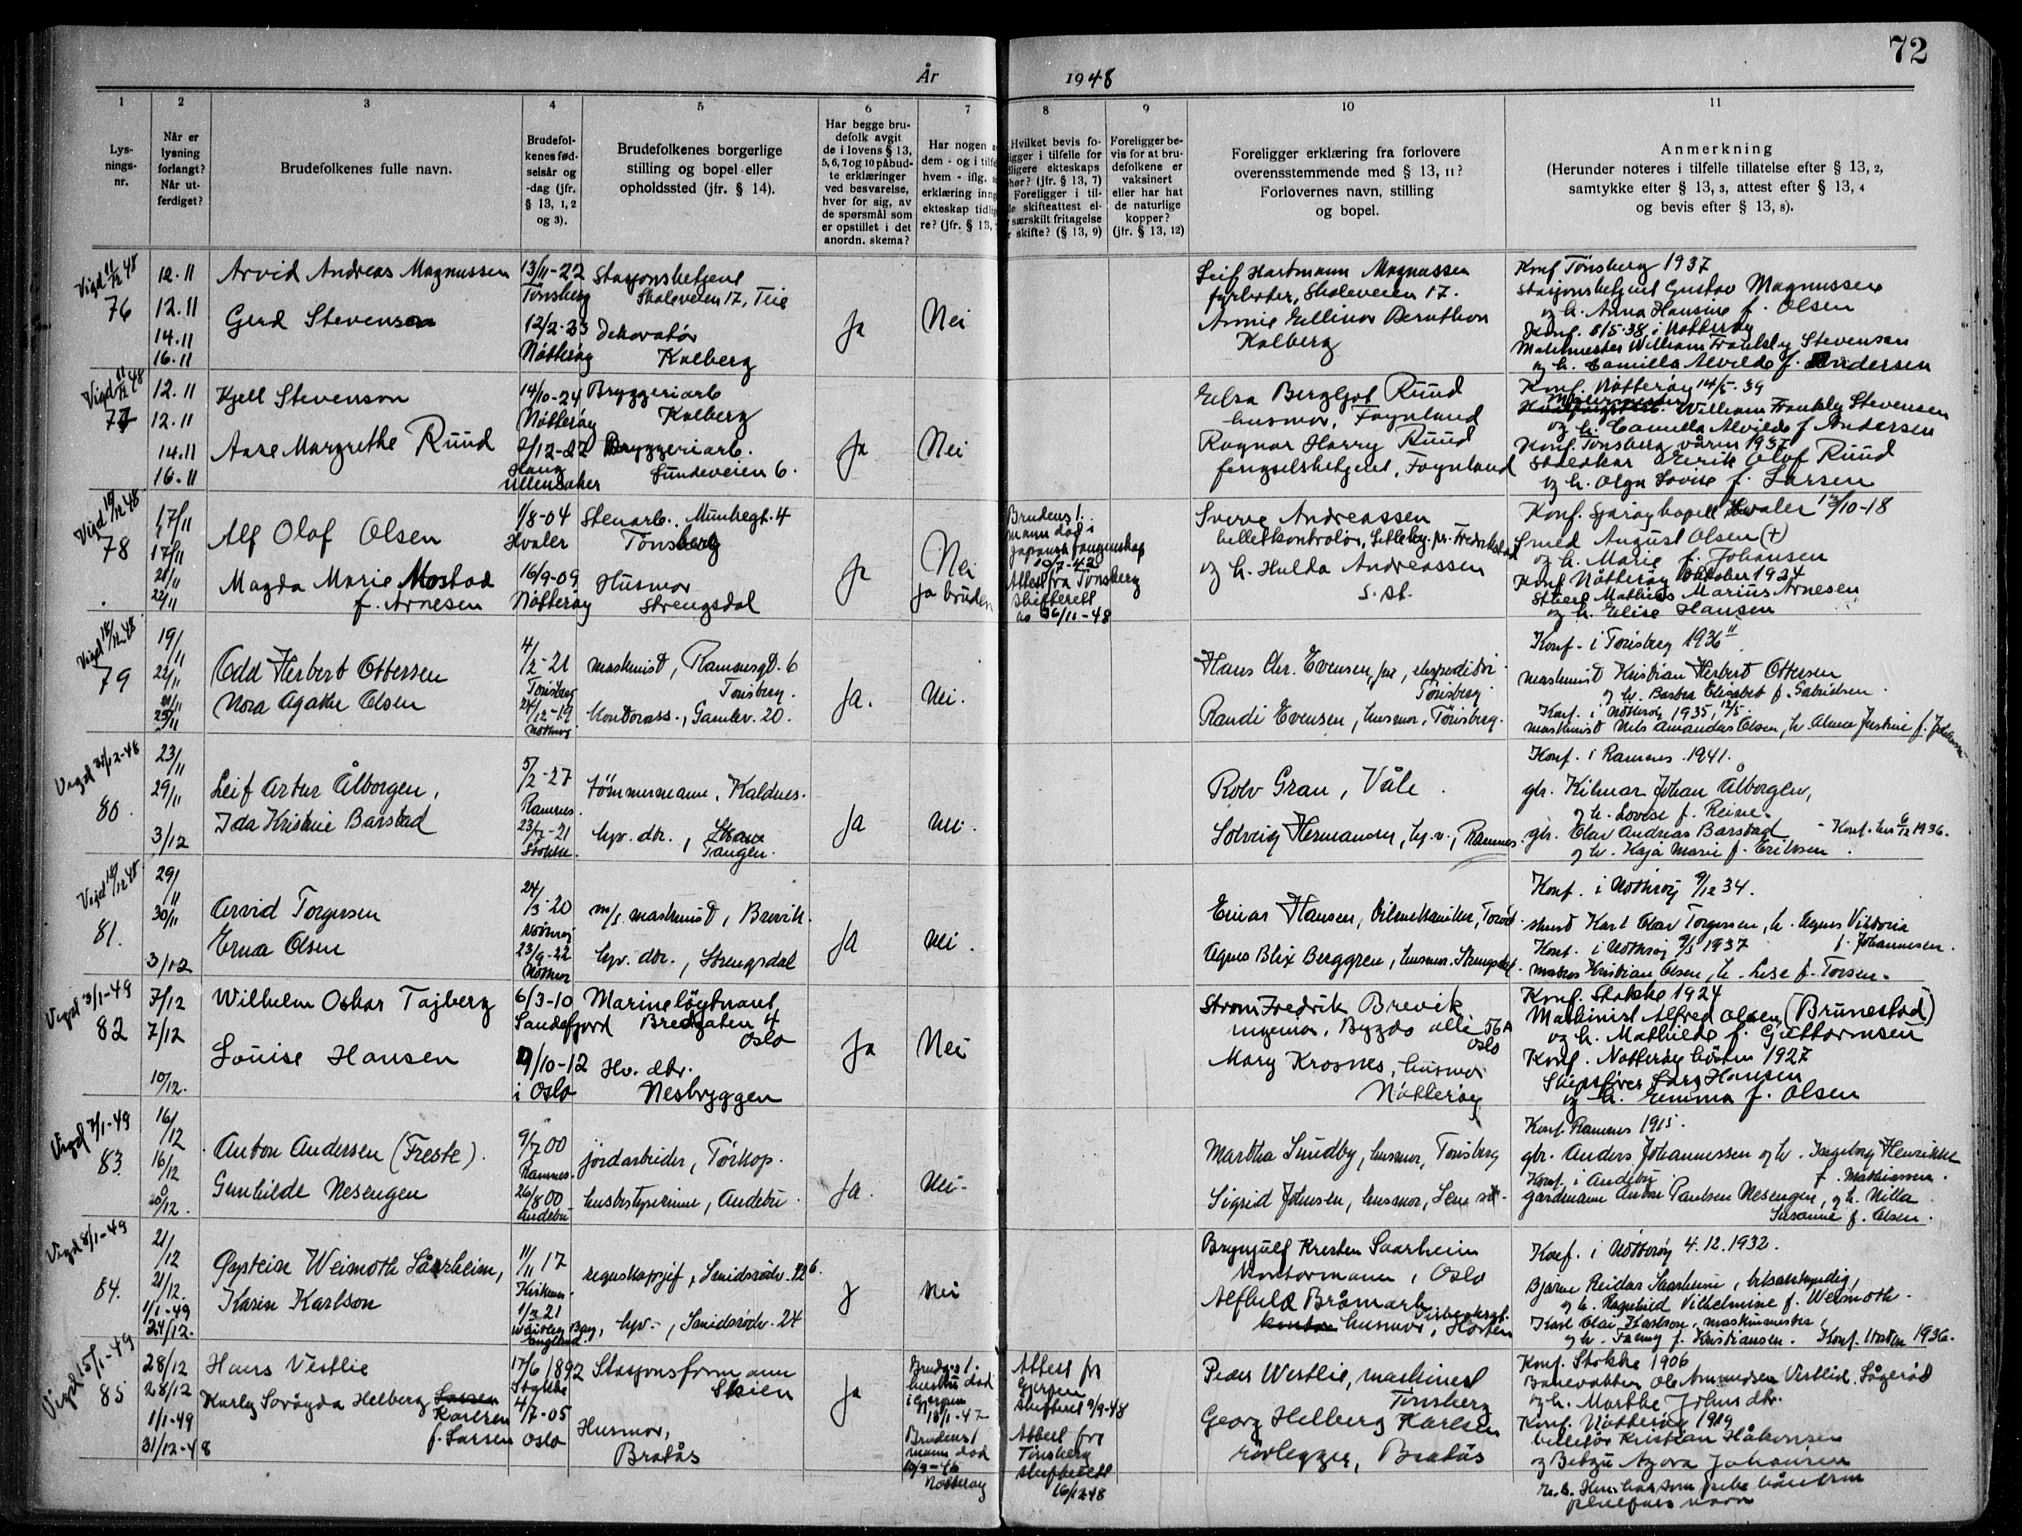 72
År 1948
1
Lys-
nings-
nr.
2
Når er
lysning
forlangt?
Når ut-
ferdiget?
3
Brudefolkenes fulle navn.
4
Brudefol-
kenes fød-
selsår og
-dag (jfr.
§ 13, 1, 2
og 3).
5
Brudefolkenes borgerlige
stilling og bopel eller
opholdssted (jfr. § 14).
6
Har begge bru-
defolk avgit
de i lovens § 13,
5, 6, 7 og 10 påbud-
te erklæringer
ved besvarelse,
hver for sig, av
de spørsmål som
er opstillet i det
anordn. skema?
7
Har nogen a
dem - og i tilfe
hvem - iflg. s
erklæring inng
ekteskap tidlig
re? (jfr. § 13,
8
Hvilket bevis fo-
ligger i tilfelle for
dligere ekteskaps
hør? (jfr. § 13, 7)
Foreligger i til-
le skifteattest el-
særskilt fritagelse
skifte? (§ 13, 9)
9
Foreligger be-
vis for at bru-
defolkene er
vaksinert
eller har hat
de naturlige
kopper?
(jfr. § 13, 12)
10
Foreligger erklæring fra forlovere
overensstemmende med § 13, 11?
Forlovernes navn, stilling
og bopel.
11
Anmerkning
(Herunder noteres i tilfelle tillatelse efter § 13, 2,
samtykke efter § 13, 3, attest efter § 13, 4
og bevis efter § 13, 8).
Vigd 11/12 48
76
12.11
12.11
14.11
16.11
Arvid Andreas Magnussen
Gerd Stevenson
13/11-22
Tönsberg
12/2-23
Nøtterøy
Stasjonsbetjent
Skoleveien 17, Teie
Dekoratør
Kolberg
Ja
Nei
Leif Hartmann Magnussen
fyrbøter, Skoleveien 17.
Annie Ellinor Berntsen
Kolberg
Konf Tönsberg 1937
Stasjonsbetjent Gustav Magnussen
og h. Anna Hansine f. Olsen
Konf. 8/5-38 i Nøtterøy
Malermester William Frankly Stevenson
og h. Camilla Alvilde f. Andersen
Vigd 11/12 48
77
12.11
12.11
14.11
16.11
Kjell Stevenson
Aase Margrethe Ruud
14/10-24
Nøtterøy
2/12-22
Haug
Ullensaker
Bryggeriarb
Kolberg
Bryggeriarb.
Sundeveien 6.
Ja
Nei
Ebba Bergljot Ruud
husmor, Føynland
Ragnar Harry Ruud
fengselsbetjent, Føynland
Konf. Nøtterøy 14/5-39
Malermester William Frankly Stevenson
og h. Camilla Alvilde f Andersen
Konf. Tönsberg våren 1937
Erik Olof Ruud
og h. Olga Lovise f. Larsen
Vigd 18/12 48
78
17/11
17/11
21/11
22/11
Alf Olaf Olsen
Magda Marie Mostad
f. Arnesen
1/8-04
Hvaler
16/9-09
Nøtterøy
Stenarb. Munkegt. 4
Tönsberg
Husmor
Strengsdal
Ja
Nei
Ja bruden
Brudens 1.
mann död i
japansk fangenskap
10/7-42
Attest fra Tönsberg
skifterett
26/11-48
Sverre Andreassen
billettkontrolør, Selbak pr. Fredrikstad
og h. Hulda Andreassen
s. st.
Konf. Spjærøy kapell Hvaler 13/10-18
Smed August Olsen (+)
og h. Marie f. Johansen
Konf Nøtterøy Oktober 1924
Mathias Marius Arnesen
og h. Elise Hansen
Vigd 18/12-48
79
19/11
22/11
22/11
25/11
Odd Herbert Ottersen
Nora Agathe Olsen
4/2-21
Tönsberg
24/12-19
Nøtterøy
maskinist, Ramnesgt. 6
Tönsberg.
Kontorass., Gamlev. 20.
Ja.
Nei.
Hans Chr. Evensen, jur, ekspeditør
Tönsberg
Randi Evensen, husmor, Tönsberg.
Konf. i Tönsberg 1936
maskinist Kristian Herbert Ottersen
og h. Barbra Elisabet f. Gabrielsen.
Konf. i Nøtterøy 1935, 12/5.
maskinist Nils Amandus Olsen, h. Alma Justine f. Johansen
Vigd 31/12-48
80.
23/11
29/11
3/12
Leif Artur Ålborgen,
Ida Kristine Barstad
5/2-27
Ramnes.
23/7-21
Stokke.
tømmermann, Kaldnes.
hyv. dtr., Tangen.
Ja
Nei.
Rolv Gran, Våle.
Solveig Hermansen, hyv., Ramnes.
Konf. i Ramnes. 1941.
gbr. Hilmar Johan Ålborgen,
og h. Lovise f. Reine.
gbr. Olav Andreas Barstad - Konf. hos 6/12 1936.
og h. Kaja Marie f. Eriksen.
Vigd 18/12 48
81.
29/11
30/11
3/12
Arvid Torgersen
Erna Olsen
24/3-20
Nøtterøy
23/9-22
Nøtterøy
m/s maskinist, Brevik.
hyv. dtr., Strengsdal
Ja
Nei.
Einar Hansen, bilmekaniker, Torød
Agnes Blix Berggren, husmor. Strengsdal.
Konf. i Nøtterøy 9/12 34.
Karl Olav Torgersen, h. Agnes Viktoria
f. Johannesen.
Konf. i Nøtterøy 9/5 1937
matros Kristian Olsen, h. Lise f. Torsen.
Vigd 3/1-49
82
7/12
7/12
10/12.
Wilhelm Oskar Tajberg
Louise Hansen
6/3-10
Sandefjord
9/10-12
i Oslo
Marineløytnant
Bredgaten 4
Oslo
Hv. dtr.
Nesbryggen
Ja
Nei
Strom Fredrik Brevik
ingeniør, Bygdø allé 56A
Oslo
Mary Krosnes, husmor
Nøtterøy
Konf. Stokke 1924
Maskinist Alfred Olsen (Brunestad)
og h. Mathilde f. Guttormsen
Konf. Nøtterøy hösten 1927
Skipsfører Lars Hansen
og h. Emma f. Olsen
Vigd 7/1-49
83
16/12
16/12
20/12.
Anton Andersen (Freste).
Gunhilde Nesengen
9/7 00
Ramnes.
26/8 00
Andebu
jordarbeider, Tørkop.
husbestyrerinne, Andebu.
Ja.
Nei.
Martha Sundby, husmor, Tönsberg
Sigrid Johnsen, husmor, Sem st.
Konf. Ramnes 1915.
gbr. Anders Johannessen og h. Ingeborg Henrikke
f. Mathiassen.
Konf. i Andebu
gårdmann Anton Paulsen Nesengen, og h. Hilla
Susanne f. Olsen.
Vigd 8/1-49
84.
21/12
21/12.
1/1-49
24/12.
Øystein Weimoth Saarheim,
Karin Karlson
11/11 17
Kirkenes.
1/3 21
Whitley Bay,
England
regnskapssjef, Smidsrødv. 126.
hyv., Smidsrødv. 24
J
Nei
Brynjulf Kresten Saarheim
kontormann, Oslo
Alfhild Bråmark
husmor, Horten
Konf. i Nøtterøy 4.12.1932.
Bjarne Reidar Saarheim, 
og h. Ragnhild Vilhelmine f. Weimoth.
Karl Olai Karlson, maskinmester,
og h. Fanny f. Kristiansen. Konf. Horten 1936.
Vigd 15/1-49
85
28/12
28/12
1/1-49
31/12-48
Hans Vestlie
Karly Solvøyda Helberg Larsen
Karlsen
f. Larsen
17/6 1892
Stokke
4/7-05
Oslo
Stasjonsformann
Skien
Husmor,
Bratås
Ja
Brudg.s 1.
hustru död
i Gjerpen
13/1-47
Brudens 1
mann död
Nøtterøy
Attest fr
Gjerpen
skifterett 9/9-48
Attest fra
Tönsberg
skifterett
16/12 48
Peder Westlie, maskinist
Tønsberg
Georg Helberg Karlsen
rørlegger, Bratås
Konf. Stokke 1906
Banevokter Ole Amundsen Vestlie, Sågerød
og h. Marthe Johnsdtr.
Konf. Nøtterøy 1919
Kristian Håkonsen
og Betzy Azora Johansen